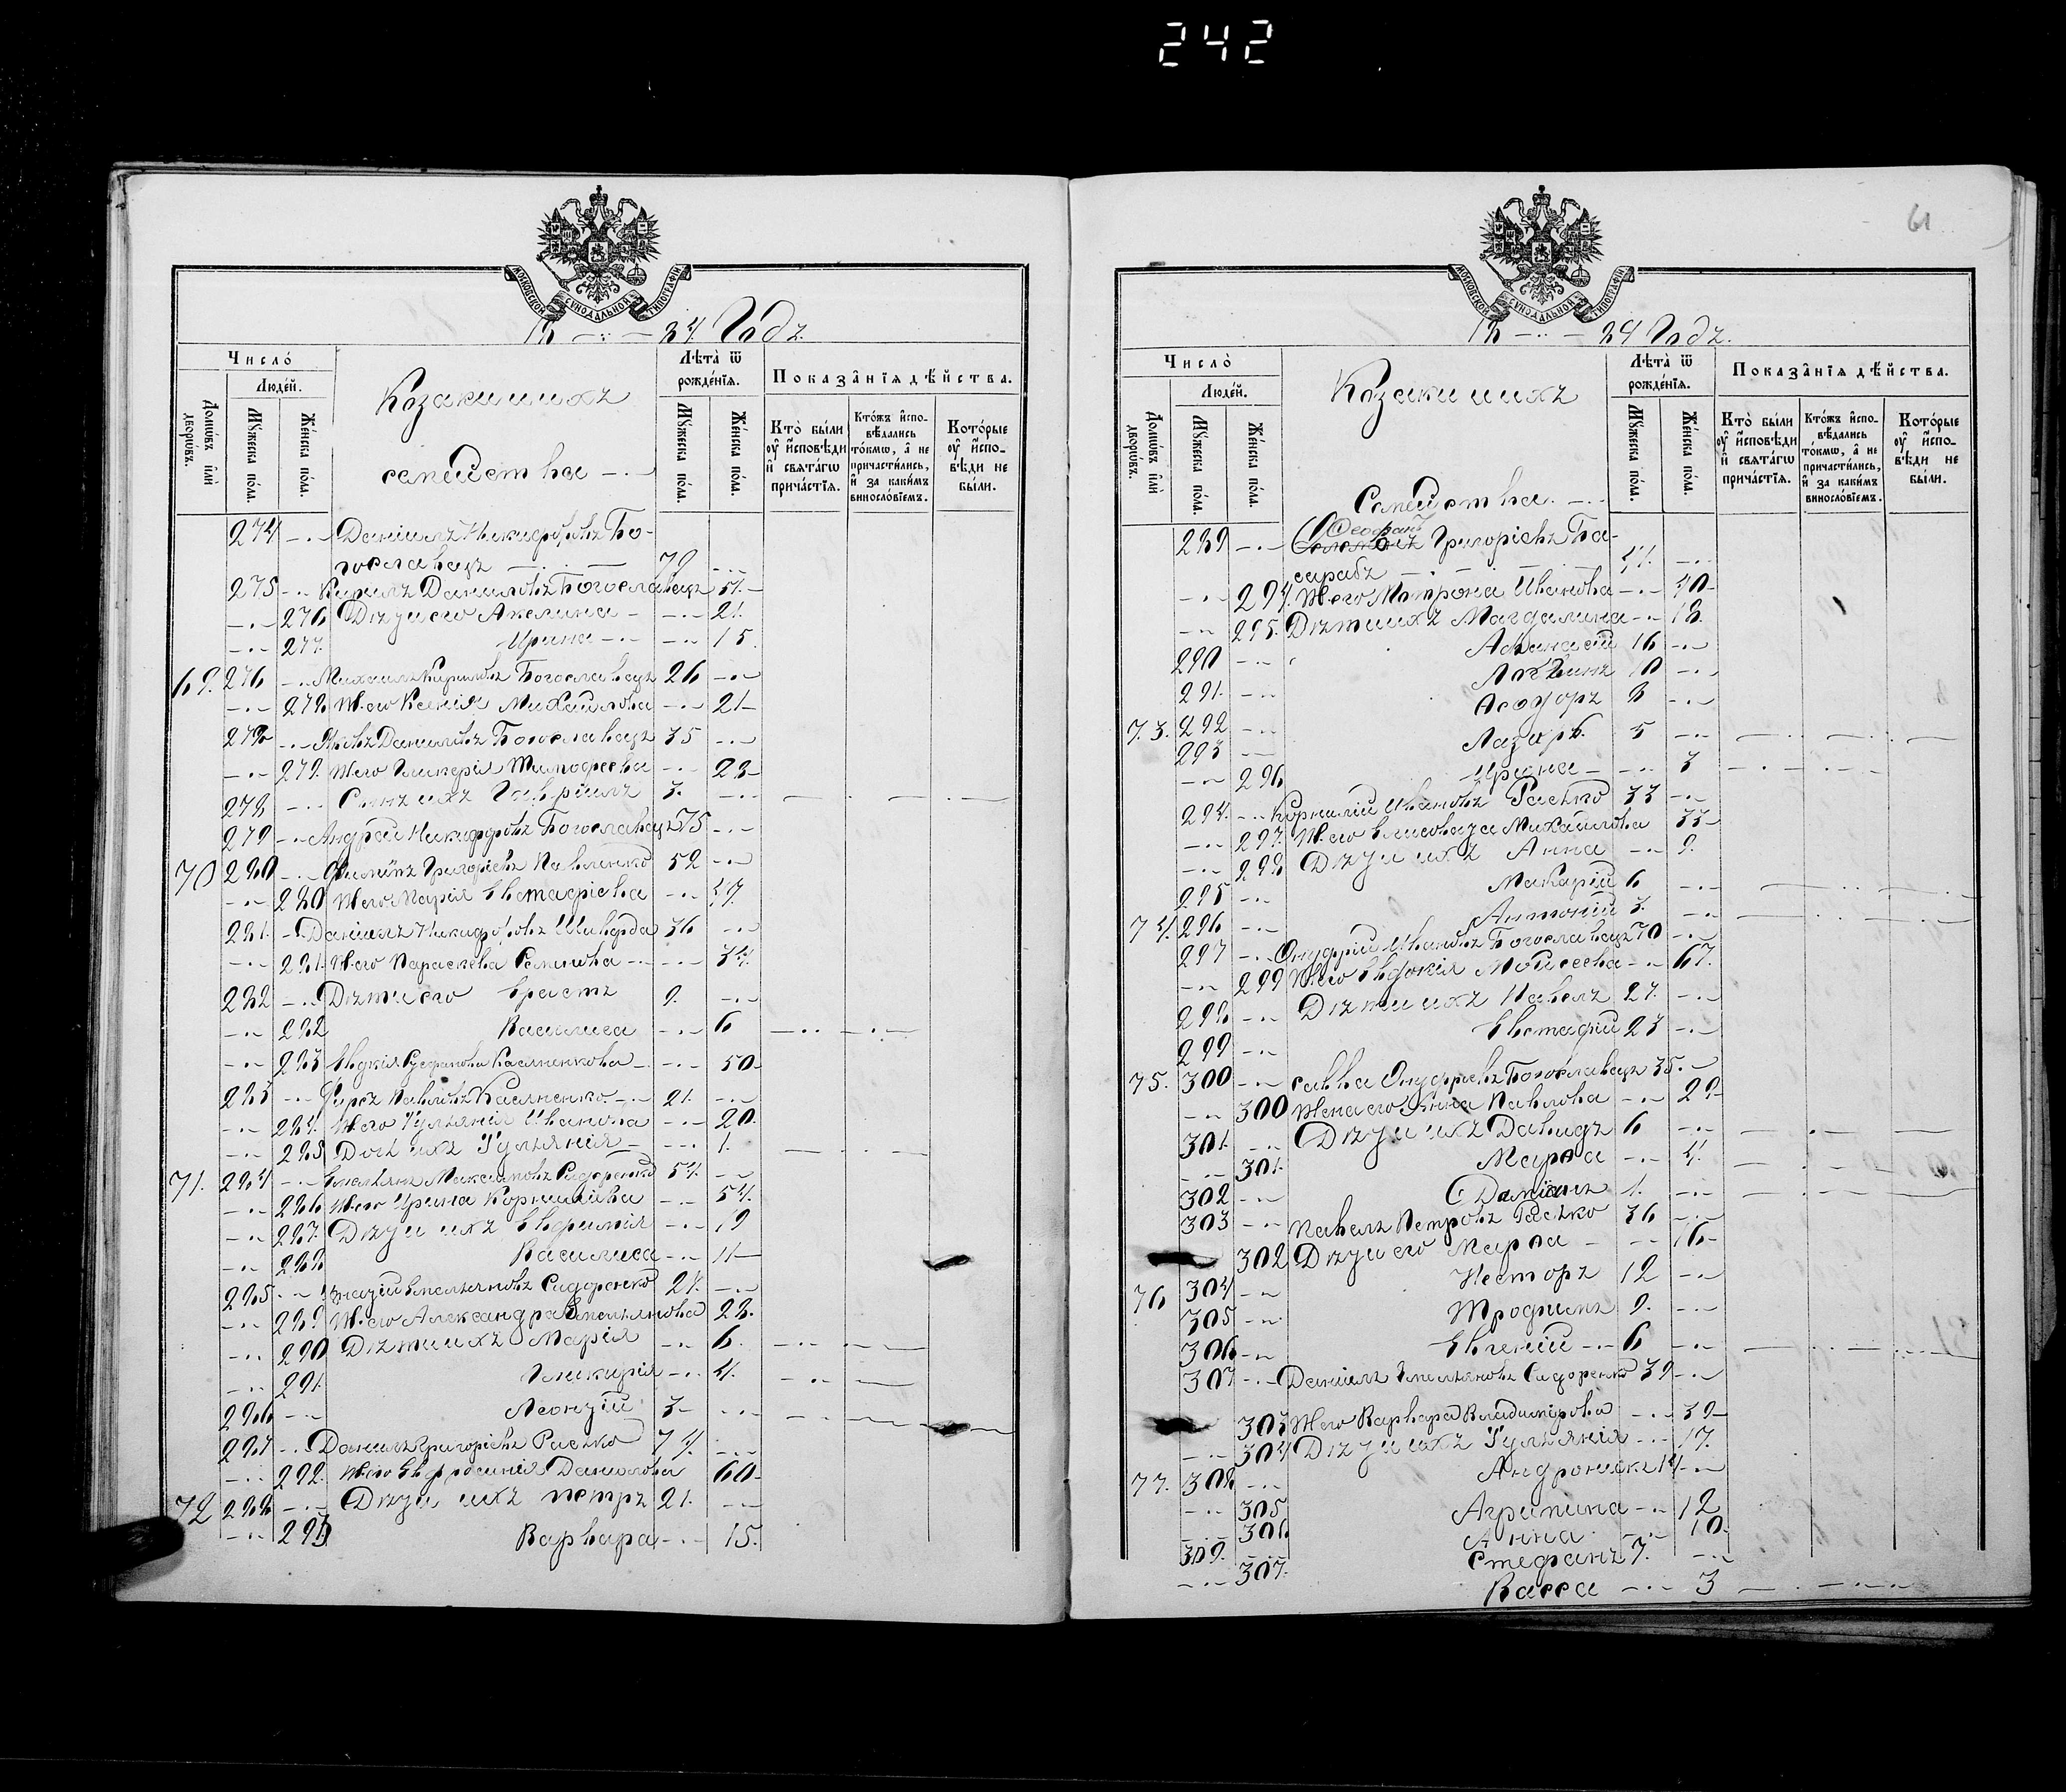 242
МОСКОВСКОЙ СѴНОДАЛЬНОЙ ТИПОГРАФІИ
18 — 84 Годъ.
Число̀
Люде́й.
Домѡ́въ и҆лѝ дворѡ́въ.
Мꙋ́жеска по́ла.
Же́нска по́ла.
Козаки и ихъ
семейства
Лѣ́та ѿ рожде́нїѧ.
Мꙋ́жеска по́ла.
Же́нска по́ла.
Показа̑нїѧ дѣ́йства.
Кто̀ бы́ли оу҆ и҆́сповѣди и҆ свѧта́гѡ прича́стїѧ.
Кто́жъ и҆сповѣ́дались то́кмѡ, а҆ не причасти́лись, и҆ за каки́мъ винословїемъ.
Кото́рые оу҆ и҆́сповѣди не бы́ли.
274 Даніилъ Никифоровъ Бо-
гославецъ 79
275 Кирилъ Даниловъ Богославецъ 51
276 Дѣти его Акелина 21
277 Ирина 15
69. 276 Михаилъ Кириловъ Богославецъ 26
278 Ж его Ксенія Михайлова 21
277 Яковъ Даниловъ Богославецъ 35
279 Ж его Гликерія Тимофеева 23
278 Сынъ ихъ Гавріилъ 3
279 Андрей Никифоровъ Богославецъ 75
70 280 Филипъ Григоріевъ Павленко 52
280 Ж его Марія Евстафіева 47
281 Даніилъ Никифоровъ Шиварда 36
281 Ж его Параскева Семенова 34
282 Дѣти его Ерастъ 9
282 Василиса 6
283 Евдокія Касяненкова 50
283 Фирсъ Павловъ Касяненко 21
284 Ж его Іуліянія Иванова 20
285 Дочь ихъ Іуліянія 1
71. 284 Емельянъ Максимовъ Сидоренко 54
286 Ж его Ирина Корнилиева 54
287 Дѣти ихъ Евфимія 19
288 Василиса 11
285 Емельяновъ Сидоренко 28
289 Ж его Александра Емельянова 28
290 Дѣти ихъ Марія 6
291 Гликерія 4
286 Леонтій 3
287 Данилъ Григоріевъ Расько 74
292 Ж его Евфросинія Данилова 60
72 288 Дѣти ихъ Петръ 21
293 Варвара 15
61
МОСКОВСКОЙ СѴНОДАЛЬНОЙ ТИПОГРАФІИ
18 — 84 Годъ.
Число̀
Люде́й.
Домѡ́въ и҆лѝ дворѡ́въ.
Мꙋ́жеска по́ла.
Же́нска по́ла.
Козаки и ихъ
Семейства.
Лѣ́та ѿ рожде́нїѧ.
Мꙋ́жеска по́ла.
Же́нска по́ла.
Показа̑нїѧ дѣ́йства.
Кто̀ бы́ли оу҆ и҆́сповѣди и҆ свѧта́гѡ прича́стїѧ.
Кто́жъ и҆сповѣ́дались то́кмѡ, а҆ не причасти́лись, и҆ за каки́мъ винословїемъ.
Кото́рые оу҆ и҆́сповѣди не бы́ли.
Феофанъ
289 Григоріевъ Ба-
сарабъ
294 Ж его Матрона Иванова 40
295 Дѣти ихъ Магдалина 18
290 Афанасій 16
291 Логвинъ 10
73. 292 Ѳеодоръ 8
293 Лазарь 5
296 Ирина 3
294 Корнилій Ивановъ Расько 33
297 Ж его Елисовета Михайлова 33
298 Дѣти ихъ Анна 9
295 Макарій 6
74. 296 Антоній 3
297 Онуфрій Ивановъ Богославецъ 70
299 Ж его Евдокія Мойсеева 67
298 Дѣти ихъ Павелъ 27
299 Евстафій 23
75. 300 Савва Онуфріевъ Богославецъ 35
300 Жена его Анна Павлова 29
301 Дѣти ихъ Давидъ 6
301 Марѳа 4
302 Даміанъ 1
303 Павелъ Петровъ Расько 36
302 Дѣти его Марѳа 16
76 304 Несторъ 12
305 Трофимъ 9
306 Евгеній 6
307 Даніилъ Емельяновъ Сидоренко 39
303 Ж его Варвара Владимірова 39
304 Дѣти ихъ Іуліянія 17
77. 308 Андроникъ 14
305 Агрипина 12
306 Анна 10
309 Стефанъ 7
307 Васса 3